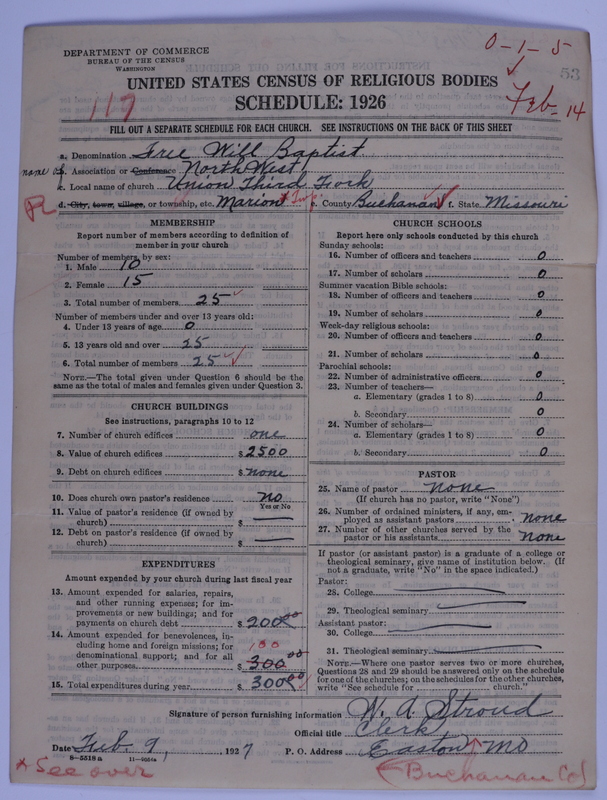 DEPARTMENT OF COMMERCE
BUREAU OF THE CENSUS
WASHINGTON
0-1-5
53
UNITED STATES CENSUS OF RELIGIOUS BODIES
SCHEDULE: 1926
117
Feb. 14
FILL OUT A SEPARATE SCHEDULE FOR EACH CHURCH. SEE INSTRUCTIONS ON THE BACK OF THIS SHEET
a. Denomination Free Will Baptist
name of b. Association or Conference North West
c. Local name of church Union Third Fork
d. City, town, village, or township, etc. Marion Twp. e. County Buchanan f. State Missouri
MEMBERSHIP
Report number of members according to definition of
member in your church
Number of members, by sex:
1. Male 10
2. Female 15
3. Total number of members 25
Number of members under and over 13 years old:
4. Under 13 years of age 0
5. 13 years old and over 25
6. Total number of members 25
NOTE.—The total given under Question 6 should be the
same as the total of males and females given under Question 3.
CHURCH BUILDINGS
See instructions, paragraphs 10 to 12
7. Number of church edifices one
8. Value of church edifices $ 2500
9. Debt on church edifices $ none
10. Does church own pastor's residence no
Yes or No
11. Value of pastor's residence (if owned by
church) $
12. Debt on pastor's residence (if owned by
church) $
EXPENDITURES
Amount expended by your church during last fiscal year
13. Amount expended for salaries, repairs,
and other running expenses; for im-
provements or new buildings; and for
payments on church debt $ 200 00
14. Amount expended for benevolences, in-
cluding home and foreign missions; for
denominational support; and for all
other purposes $ 100 300 00
15. Total expenditures during year $ 300 00
CHURCH SCHOOLS
Report here only schools conducted by this church
Sunday schools:
16. Number of officers and teachers 0
17. Number of scholars 0
Summer vacation Bible schools:
18. Number of officers and teachers 0
19. Number of scholars 0
Week-day religious schools:
20. Number of officers and teachers 0
21. Number of scholars 0
Parochial schools:
22. Number of administrative officers 0
23. Number of teachers—
a. Elementary (grades 1 to 8) 0
b. Secondary 0
24. Number of scholars—
a. Elementary (grades 1 to 8) 0
b. Secondary 0
PASTOR
25. Name of pastor none
(If church has no pastor, write "None")
26. Number of ordained ministers, if any, em-
ployed as assistant pastors none
27. Number of other churches served by the
pastor or his assistants none
If pastor (or assistant pastor) is a graduate of a college or
theological seminary, give name of institution below. (If
not a graduate, write "No" in the space indicated.)
Pastor:
28. College
29. Theological seminary
Assistant pastor:
30. College
31. Theological seminary
NOTE.—Where one pastor serves two or more churches,
Questions 28 and 29 should be answered only on the schedule
for one of the churches; on the schedules for the other churches,
write "See schedule for church."
Signature of person furnishing information W. A. Stroud
Official title Clerk
Date Feb. 9, 1927 P. O. Address Easton Mo
8-5518a
* See over
(Buchanan Co)